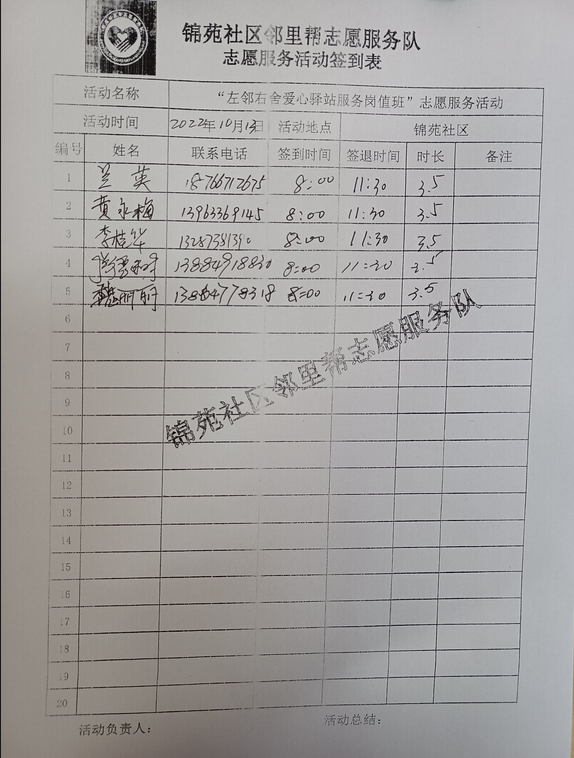 锦苑社区邻里帮志愿服务队
志愿服务活动签到表
活动名称 “左邻右舍爱心驿站服务岗值班”志愿服务活动
活动时间 2022年10月13日 活动地点 锦苑社区
编号 姓名 联系电话 签到时间 签退时间 时长 备注
1 兰英 18766712675 8:00 11:30 3.5
2 黄永梅 13963369145 8:00 11:30 3.5
3 李桂华 13287381390 8:00 11:30 3.5
4 13884918830 8:00 11:30 3.5
5 丽 8:00 11:30 3.5
6
7
8
9
锦苑社区邻里帮志愿服务队
10
11
12
13
14
15
16
17
18
19
20
活动负责人: 活动总结: